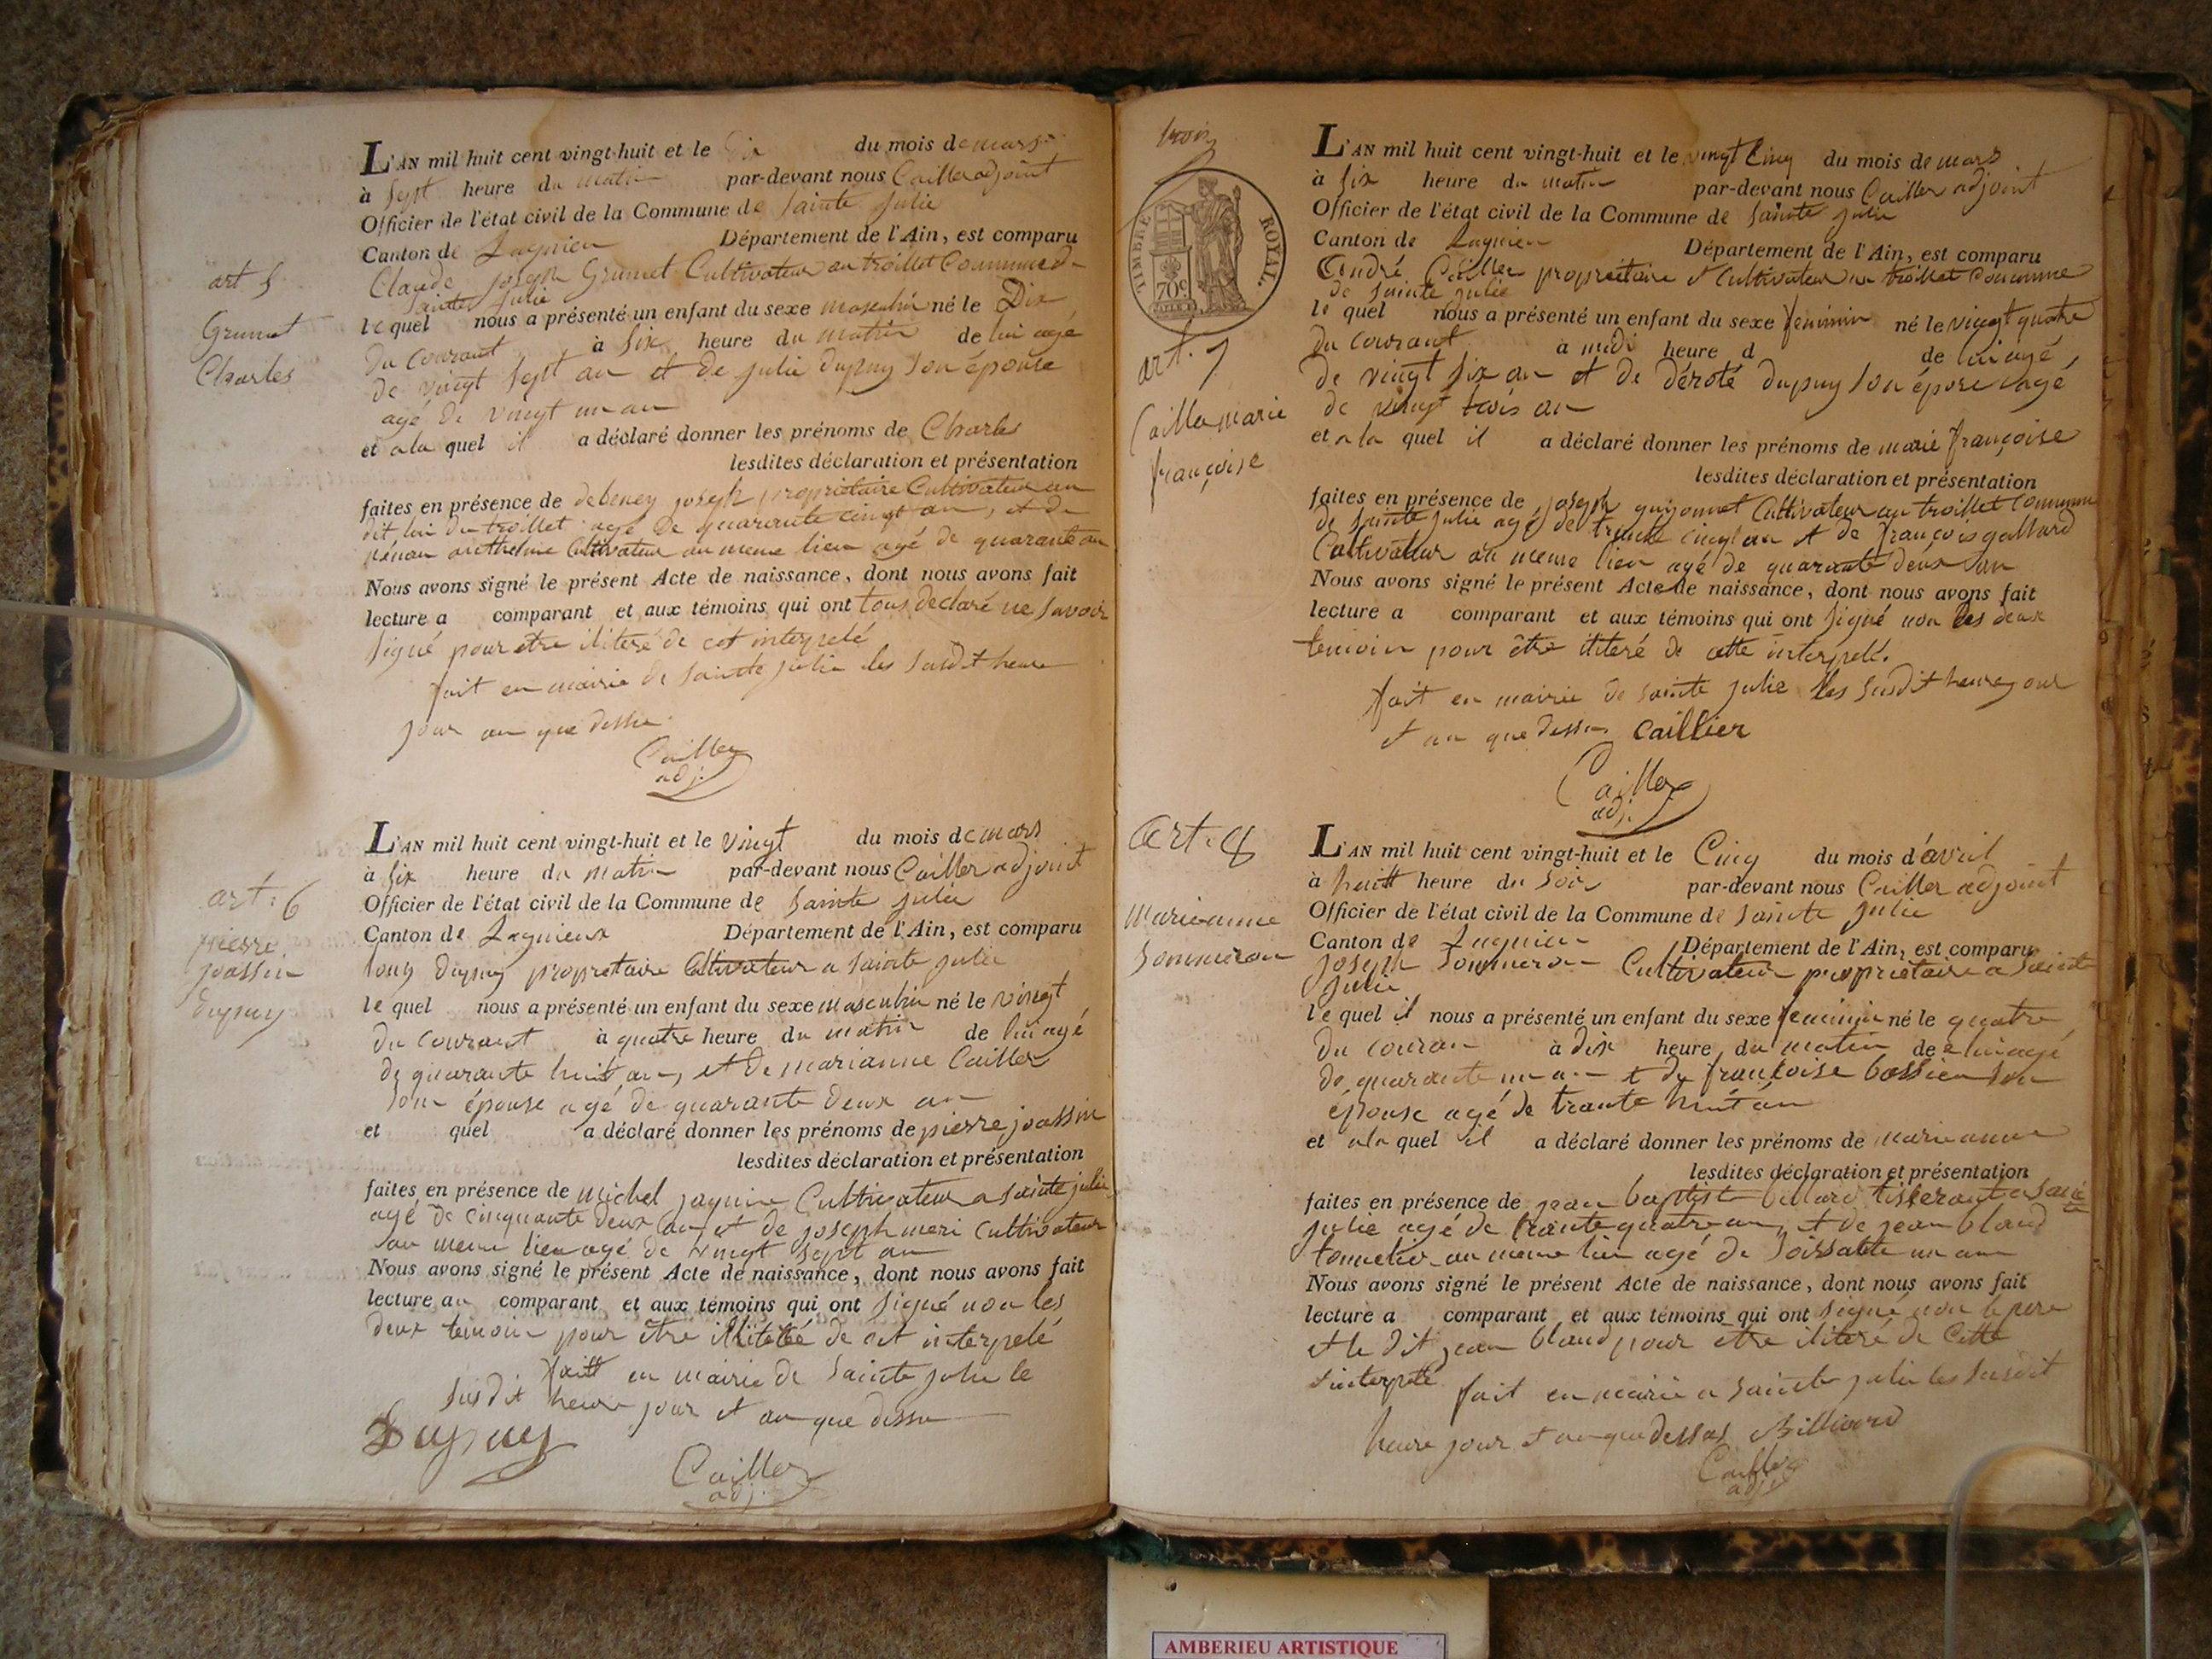 art 5
Grumet
Charles
L'AN mil huit cent vingt-huit et le Dix du mois de mars
à sept heure du matin par-devant nous Cailler adjoint
Officier de l'état civil de la Commune de Sainte julie
Canton de Lagnieu Département de l'Ain, est comparu
Claude joseph Grumet Cultivateur au troillet Commune de
Sainte julie
le quel nous a présenté un enfant du sexe masculin né le Dix
du courant à six heure du matin de lui agé
de vingt sept an et de julie dupuy son épouse
agé de vingt un an
et a la quel il a déclaré donner les prénoms de Charles
lesdites déclaration et présentation
faites en présence de debeney joseph propriétaire Cultivateur au
dit lieu du troillet agé de quarante cinq an, et de
anthelme Cultivateur au meme lieu agé de quarante an
Nous avons signé le présent Acte de naissance, dont nous avons fait
lecture a comparant et aux témoins qui ont tous declaré ne savoir
signé pour etre iliteré de cet interpelé
fait en mairie de Sainte julie les susdit heure
jour an que dessu
Cailler
adj.
art. 6
pierre
joassin
dupuy
L'AN mil huit cent vingt-huit et le vingt du mois de mars
à six heure du matin par-devant nous Cailler adjoint
Officier de l'état civil de la Commune de Sainte julie
Canton de Lagnieux Département de l'Ain, est comparu
louy dupuy proprietaire Cltivateur a Sainte julie
le quel nous a présenté un enfant du sexe masculin né le vingt
du courant à quatre heure du matin de lui agé
de quarante huit an, et de marianne Cailler
son épouse agé de quarante deux an
et quel a déclaré donner les prénoms de pierre joassin
lesdites déclaration et présentation
faites en présence de michel Cultivateur a Sainte julie
agé de cinquante deux an et de joseph meri cultivateur
au meme lieu agé de vingt sept an
Nous avons signé le présent Acte de naissance, dont nous avons fait
lecture au comparant et aux témoins qui ont signé non les
deux temoin pour être de cet interpelé
faitt en mairie de Sainte julie le
susdit heure jour et an que dessu
Dupuy
Cailler
adj.
trois
TIMBRE ROYAL.
70c
art. 7
Cailler marie
françoise
L'AN mil huit cent vingt-huit et le vingt Cinq du mois de mars
à six heure du matin par-devant nous Cailler adjoint
Officier de l'état civil de la Commune de Sainte julie
Canton de Lagnieu Département de l'Ain, est comparu
André Cailler propriétaire et Cultivateur au troillet Commune
de Sainte julie
le quel nous a présenté un enfant du sexe feminin né le vingt quatre
du courant à midi heure d de lui agé,
de vingt six an et de déroté dupuy son épouse agé
de vingt trois an
et a la quel il a déclaré donner les prénoms de marie françoise
lesdites déclaration et présentation
faites en présence de joseph guijonnet Cultivateur au troillet Commune
de Sainte julie agé de trente cinq an et de françois gallard
Cultivateur au meme lieu agé de quarante deux an
Nous avons signé le présent Acte de naissance, dont nous avons fait
lecture a comparant et aux témoins qui ont signé non les deux
temoin pour être iliteré de cette interpelé.
fait en mairie de Sainte julie les susdit heure jour
et an que dessu Caillier
Cailler
adj.
art. 8
Marieanne
Sommeron
L'AN mil huit cent vingt-huit et le Cinq du mois d'avril
à huitt heure du soir par-devant nous Cailler adjoint
Officier de l'état civil de la Commune de Sainte julie
Canton de Lagnieu Département de l'Ain, est comparu
joseph Sommeron Cultivateur propriétaire a Sainte
julie
le quel il nous a présenté un enfant du sexe feminin né le quatre
du couran à dix heure du matin de lui agé
de quarante un an et de françoise bossieu son
épouse agé de trante huit an
et a la quel il a déclaré donner les prénoms de marieanne
lesdites déclaration et présentation
faites en présence de jean baptist billard tisserant a Sainte
julie agé de trante quatre an, et de jean bland
tonnelier au meme lieu agé de soissante un an
Nous avons signé le présent Acte de naissance, dont nous avons fait
lecture a comparant et aux témoins qui ont signé non le pere
et le dit jean bland pour etre iliteré de cette
interpelé fait en mairie a Sainte julie les susdit
heure jour et an que dessus Billiard
Cailler
adj.
AMBERIEU ARTISTIQUE